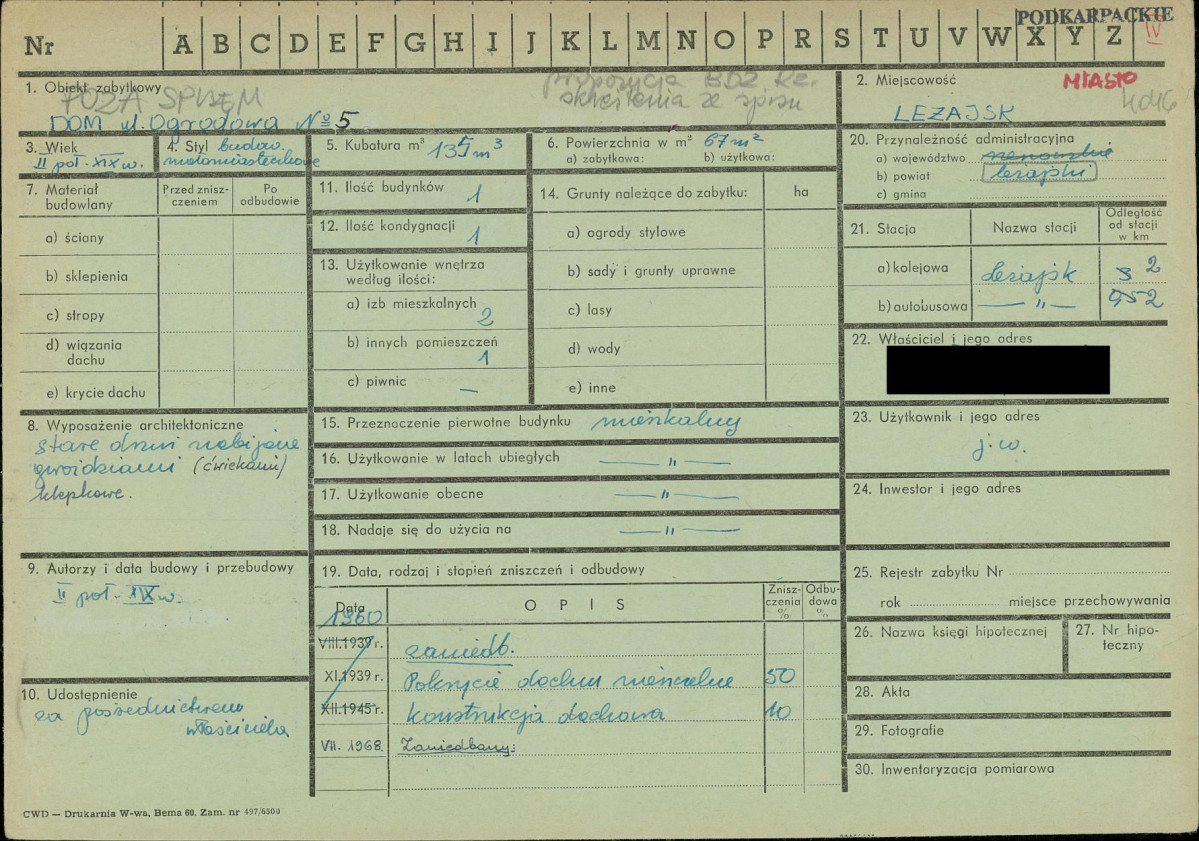 PODKARPACKIE
Nr A B C D E F G H I J K L M N O P R S T U V W X Y Z IV
1. Obiekt zabytkowy
POZA SPISEM
propozycja BDZ Rz.
skreślenia ze spisu
DOM ul. Ogrodowa № 5
2. Miejscowość
MIASTO
LEŻAJSK
3. Wiek
II poł. XIX w.
4. Styl budow.
małomiasteczkowe
5. Kubatura m³ 135 m³
6. Powierzchnia w m² 67 m²
a) zabytkowa: b) użytkowa:
7. Materiał budowlany
Przed zniszczeniem
Po odbudowie
a) ściany
b) sklepienia
c) stropy
d) wiązania dachu
e) krycie dachu
8. Wyposażenie architektoniczne
stare drzwi nabijane
gwoździami (ćwiekami)
klepkowe.
9. Autorzy i data budowy i przebudowy
II poł. XIX w.
10. Udostępnienie
za pośrednictwem
właściciela
11. Ilość budynków 1
12. Ilość kondygnacji 1
13. Użytkowanie wnętrza
według ilości:
a) izb mieszkalnych 2
b) innych pomieszczeń 1
c) piwnic —
14. Grunty należące do zabytku: ha
a) ogrody stylowe
b) sady i grunty uprawne
c) lasy
d) wody
e) inne
15. Przeznaczenie pierwotne budynku mieszkalny
16. Użytkowanie w latach ubiegłych — " —
17. Użytkowanie obecne — " —
18. Nadaje się do użycia na — " —
19. Data, rodzaj i stopień zniszczeń i odbudowy
Data OPIS Zniszczenia % Odbudowa %
1960
VIII.1939 r. zaniedb.
XI.1939 r. Pokrycie dachu 50
XII.1945 r. konstrukcja dachowa 10
VII. 1968. Zaniedbany.
20. Przynależność administracyjna
a) województwo rzeszowskie
b) powiat leżajski
c) gmina
21. Stacja Nazwa stacji Odległość od stacji w km
a) kolejowa Leżajsk 2
b) autobusowa — " —
22. Właściciel i jego adres
23. Użytkownik i jego adres
j.w.
24. Inwestor i jego adres
25. Rejestr zabytku Nr
rok miejsce przechowywania
26. Nazwa księgi hipotecznej
27. Nr hipoteczny
28. Akta
29. Fotografie
30. Inwentaryzacja pomiarowa
CWD — Drukarnia W-wa, Bema 60. Zam. nr 497/6500